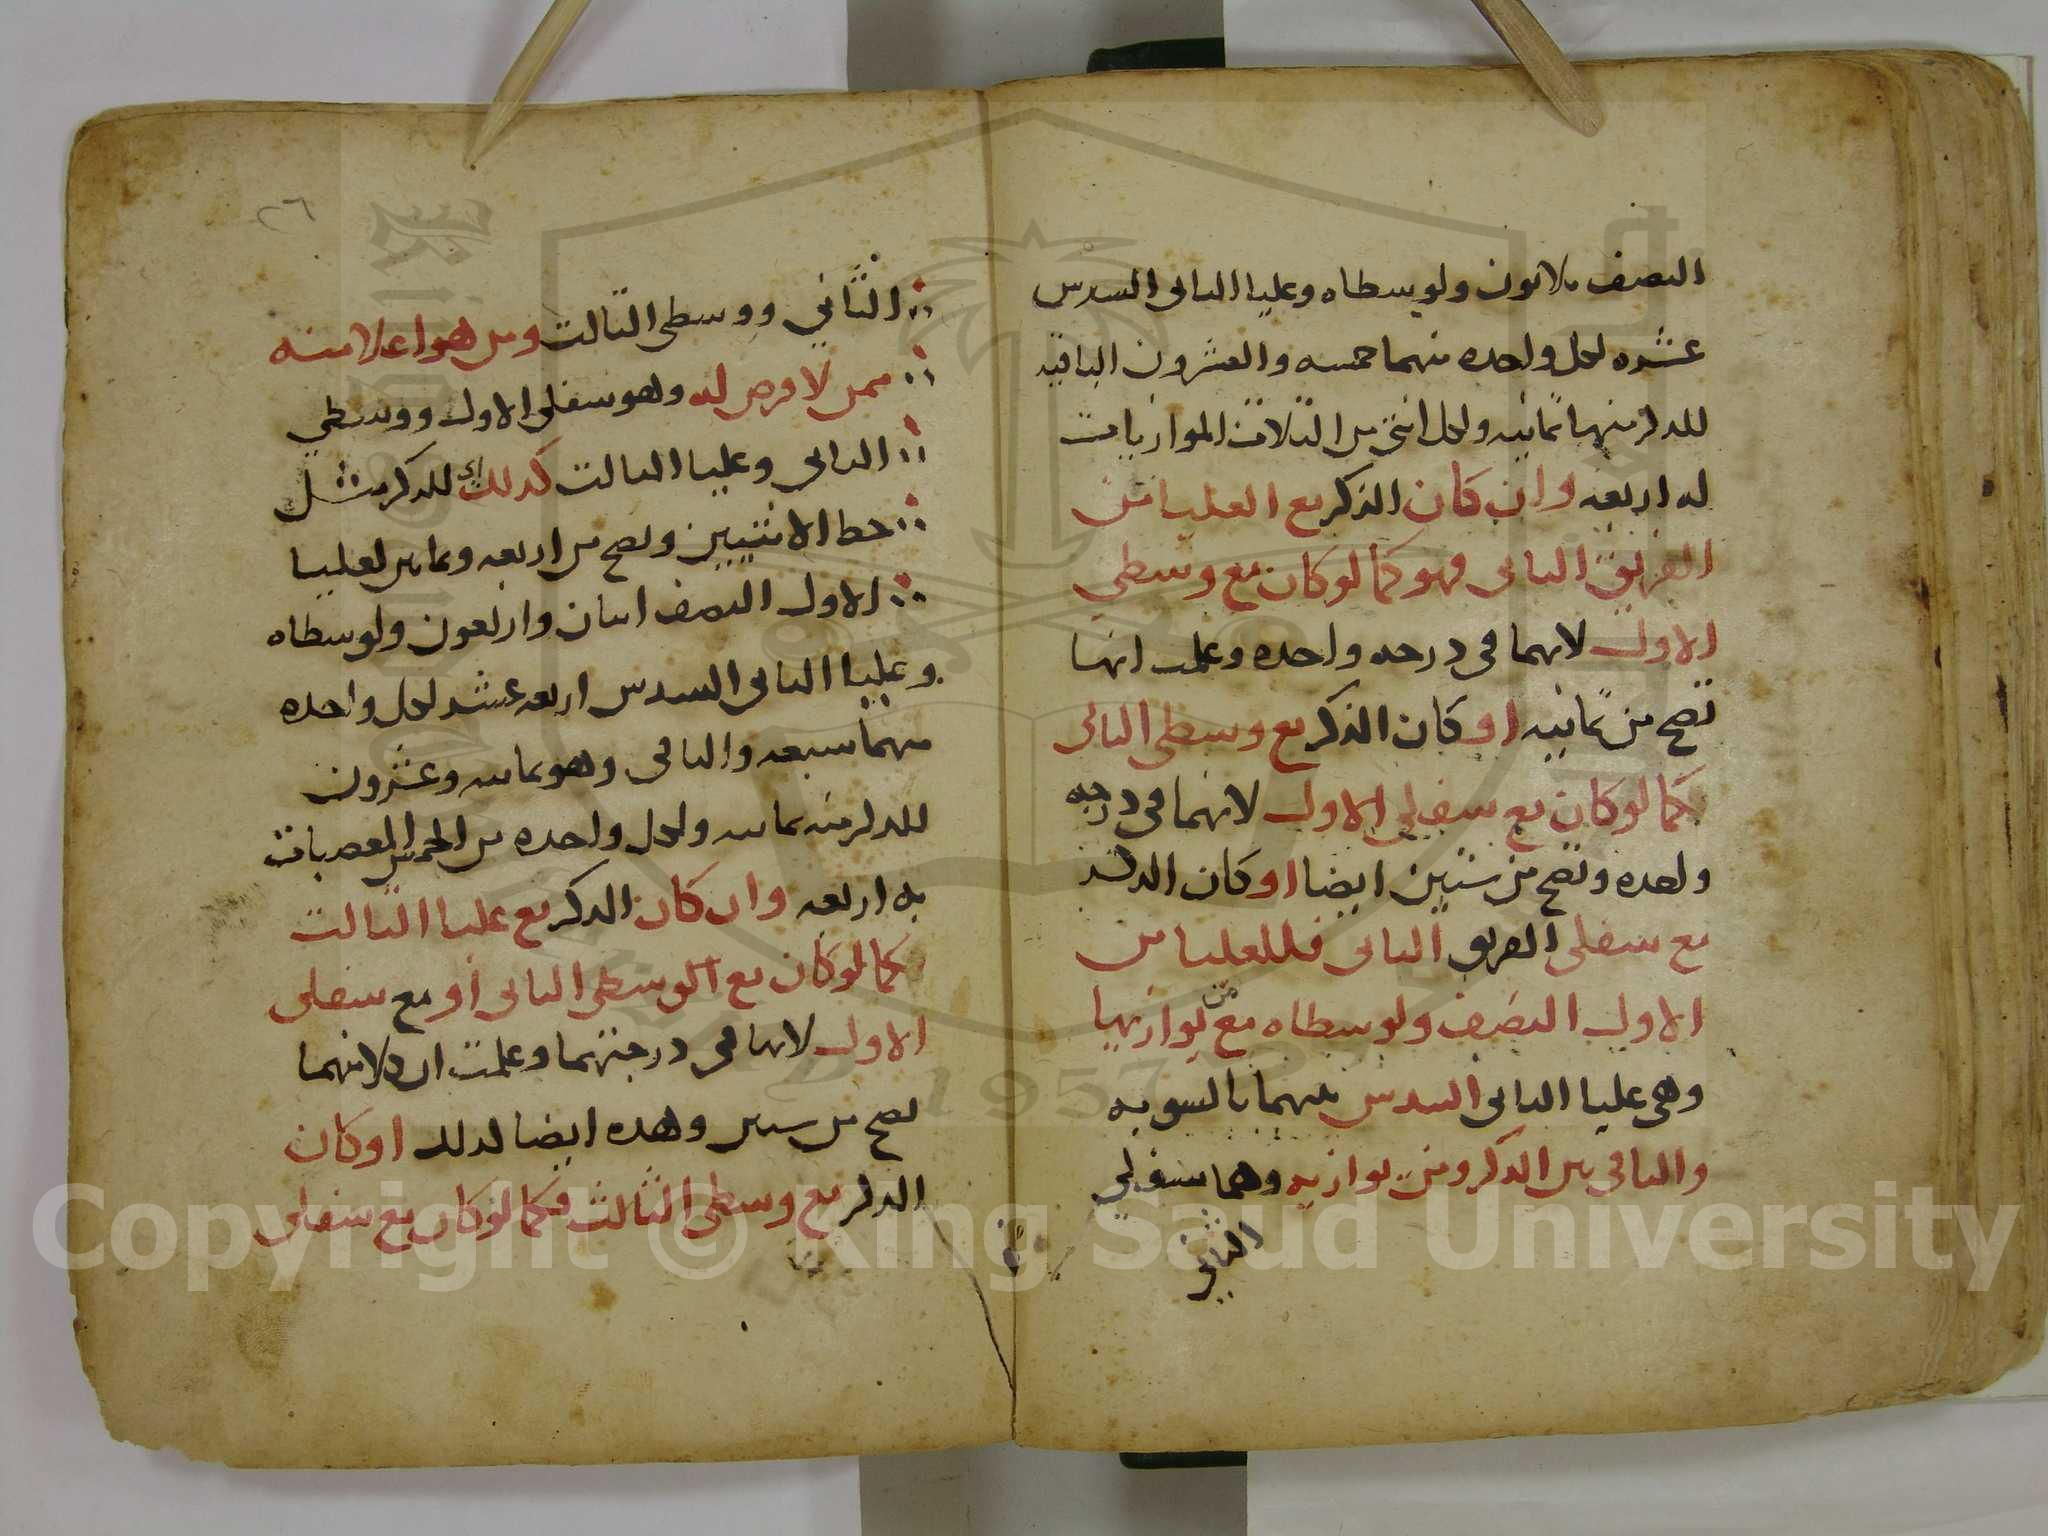 النصف ثلاثون ولوسطاه وعليا الثاني السدس
عشره لكل واحده منهما خمسه والعشرون الباقيه
للذكر منها ثمانيه ولكل انثى من الثلاث الموازيات
له اربعه وان كان الذكر مع العليا من
الفريق الثاني فهو كما لو كان مع وسطى
الاول لانهما في درجه واحده وعلمت انها
تصح من ثمانيه او كان الذكر مع وسطى الثاني
كما لو كان مع سفلى الاول لانهما في درجه
واحده وتصح من ستين ايضا او كان الذكر
مع سفلى الفريق الثاني فللعليا من
الاول النصف ولوسطاه مع من يوازيها
وهي عليا الثاني السدس بينهما بالسويه
والباقي بين الذكر ومن يوازيه وهما سفلي
الثاني
٢٦
الثاني ووسطى الثالث ومن هو اعلا منه
ممن لا فرض له وهو سفلى الاول ووسطي
الثاني وعليا الثالث كذلك للذكر مثل
حظ الانثيين وتصح من اربعه وثمانين لعليا
الاول النصف اثنان واربعون ولوسطاه
وعليا الثاني السدس اربعه عشر لكل واحده
منهما سبعه والباقي وهو ثمانيه وعشرون
للذكر منه ثمانيه ولكل واحده من الخمس المعصبات
به اربعه وان كان الذكر مع عليا الثالث
كما لو كان مع الوسطى الثاني او مع سفلى
الاول لانها في درجتهما وعلمت ان كلا منهما
تصح من ستين وهذه ايضا كذلك او كان
الذكر مع وسطى الثالث فكما لو كان مع سفلى
Copyright © King Saud University
1957